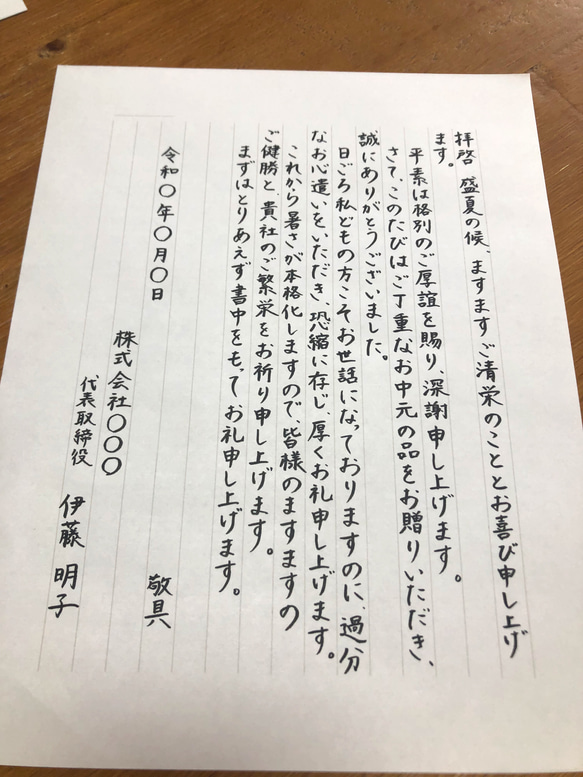 拝啓　盛夏の候、ますますご清栄のこととお喜び申し上げ
ます。
平素は格別のご厚誼を賜り、深謝申し上げます。
さて、このたびはご丁重なお中元の品をお贈りいただき、
誠にありがとうございました。
日ごろ私どもの方こそお世話になっておりますのに、過分
なお心遣いをいただき、恐縮に存じ、厚くお礼申し上げます。
これから暑さが本格化しますので、皆様のますますの
ご健勝と、貴社のご繁栄をお祈り申し上げます。
まずはとりあえず書中をもってお礼申し上げます。
敬具
令和〇年〇月〇日
株式会社〇〇〇
代表取締役　伊藤　明子